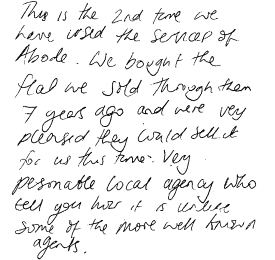 This is the 2nd time we
have used the services of
Abode. We bought the
flat we sold through them
7 years ago and were very
pleased they could sell it
for us this time. Very
personable local agency who
tell you how it is unlike
some of the more well known
agents.